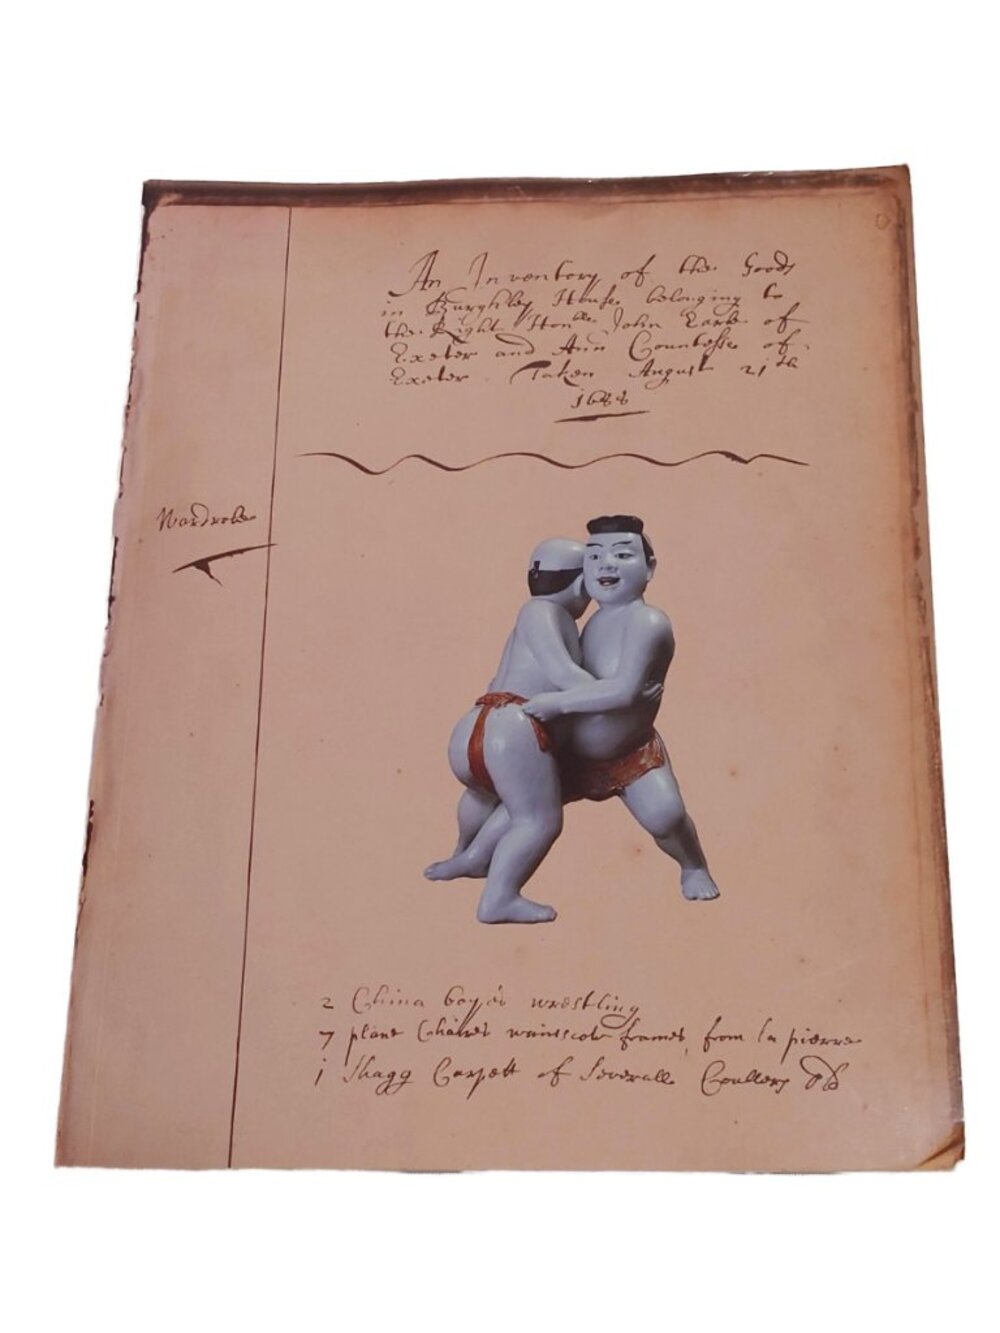 An Inventory of the Goods
in Burghley House belonging to
the Right Hon.ble John Earle of
Exeter and Ann Countesse of
Exeter Taken August 21th
1688
Wardrobe
2 China boyes wrestling
7 plane Chaires wainscote frames, from la pierre
1 Shagg Carpett of Severalle Coullers